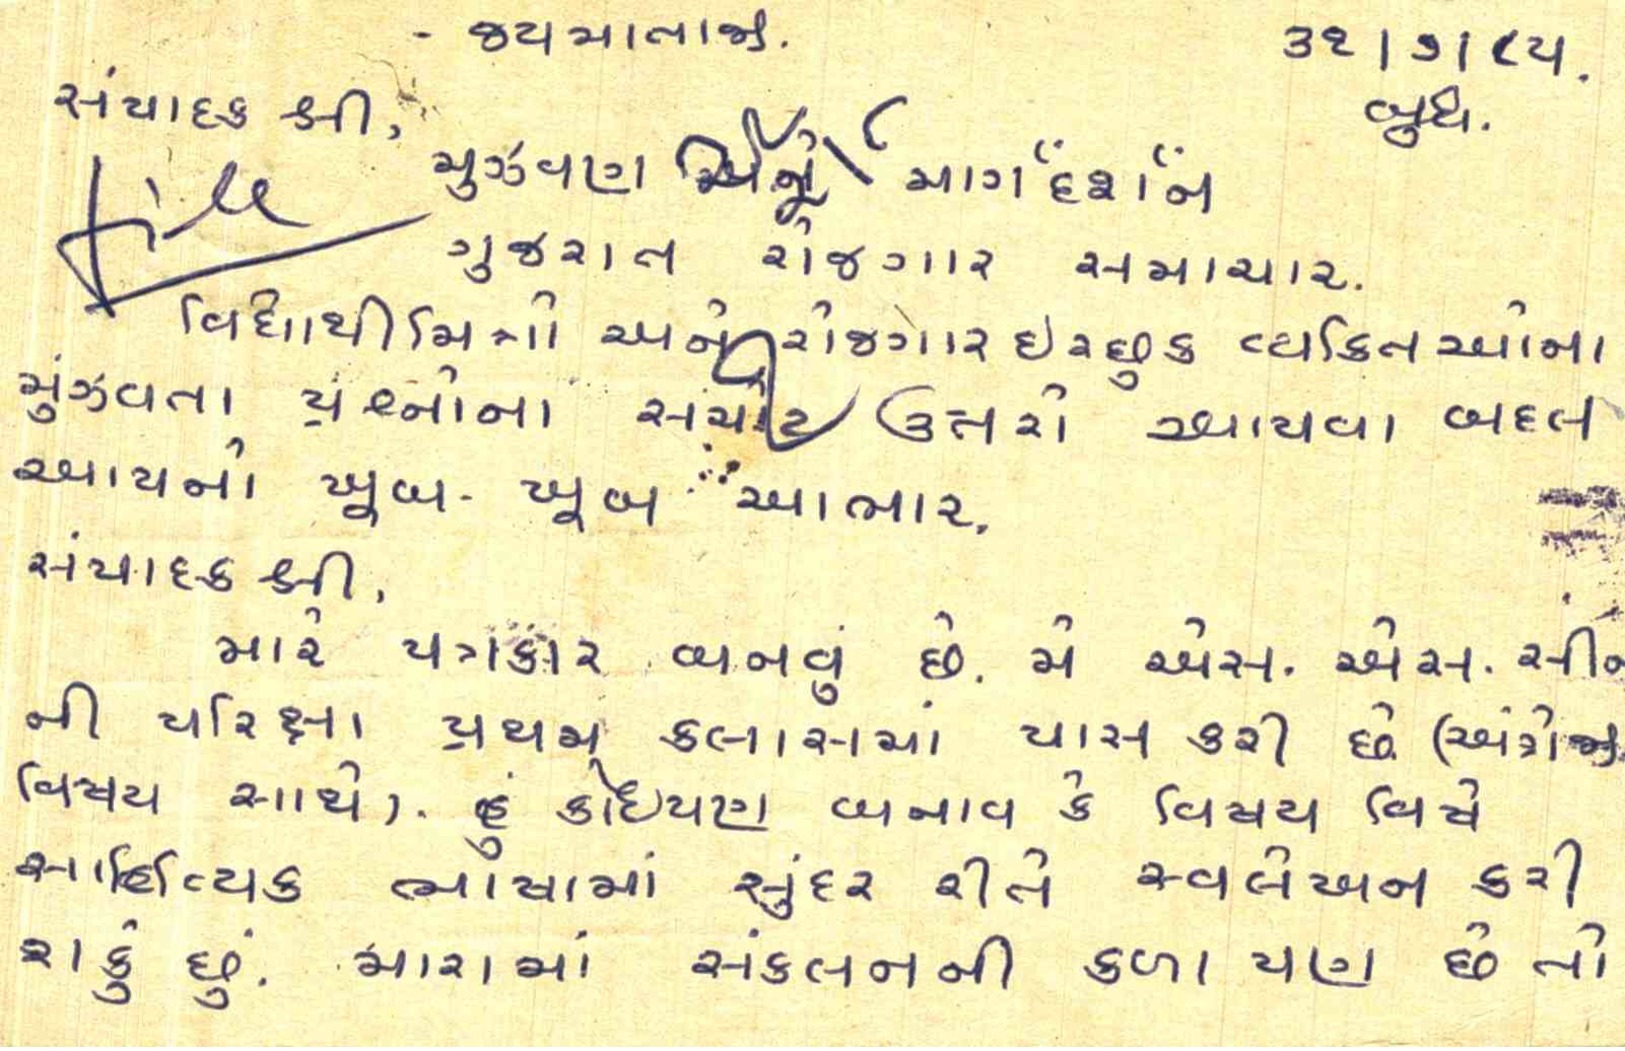 - જયમાતાજી.
૩૧/૭/૮૫.
બુધ.
સંપાદક શ્રી,
file
મુઝવણ અને "માર્ગદર્શન"
ગુજરાત રોજગાર સમાચાર.
વિદ્યાર્થીમિત્રો અને રોજગાર ઇચ્છુક વ્યકિતઓના
મુંઝવતા પ્રશ્નોના સચોટ ઉત્તરો આપવા બદલ
આપનો ખૂબ- ખૂબ આભાર.
સંપાદક શ્રી,
મારે પત્રકાર બનવું છે. મે એસ. એસ. સી.
ની પરિક્ષા પ્રથમ કલાસમાં પાસ કરી છે (અંગ્રેજી
વિષય સાથે). હું કોઇપણ બનાવ કે વિષય વિષે
સાહિત્યિક ભાષામાં સુંદર રીતે સ્વલેખન કરી
શકું છું. મારામાં સંકલનની કળા પણ છે તો